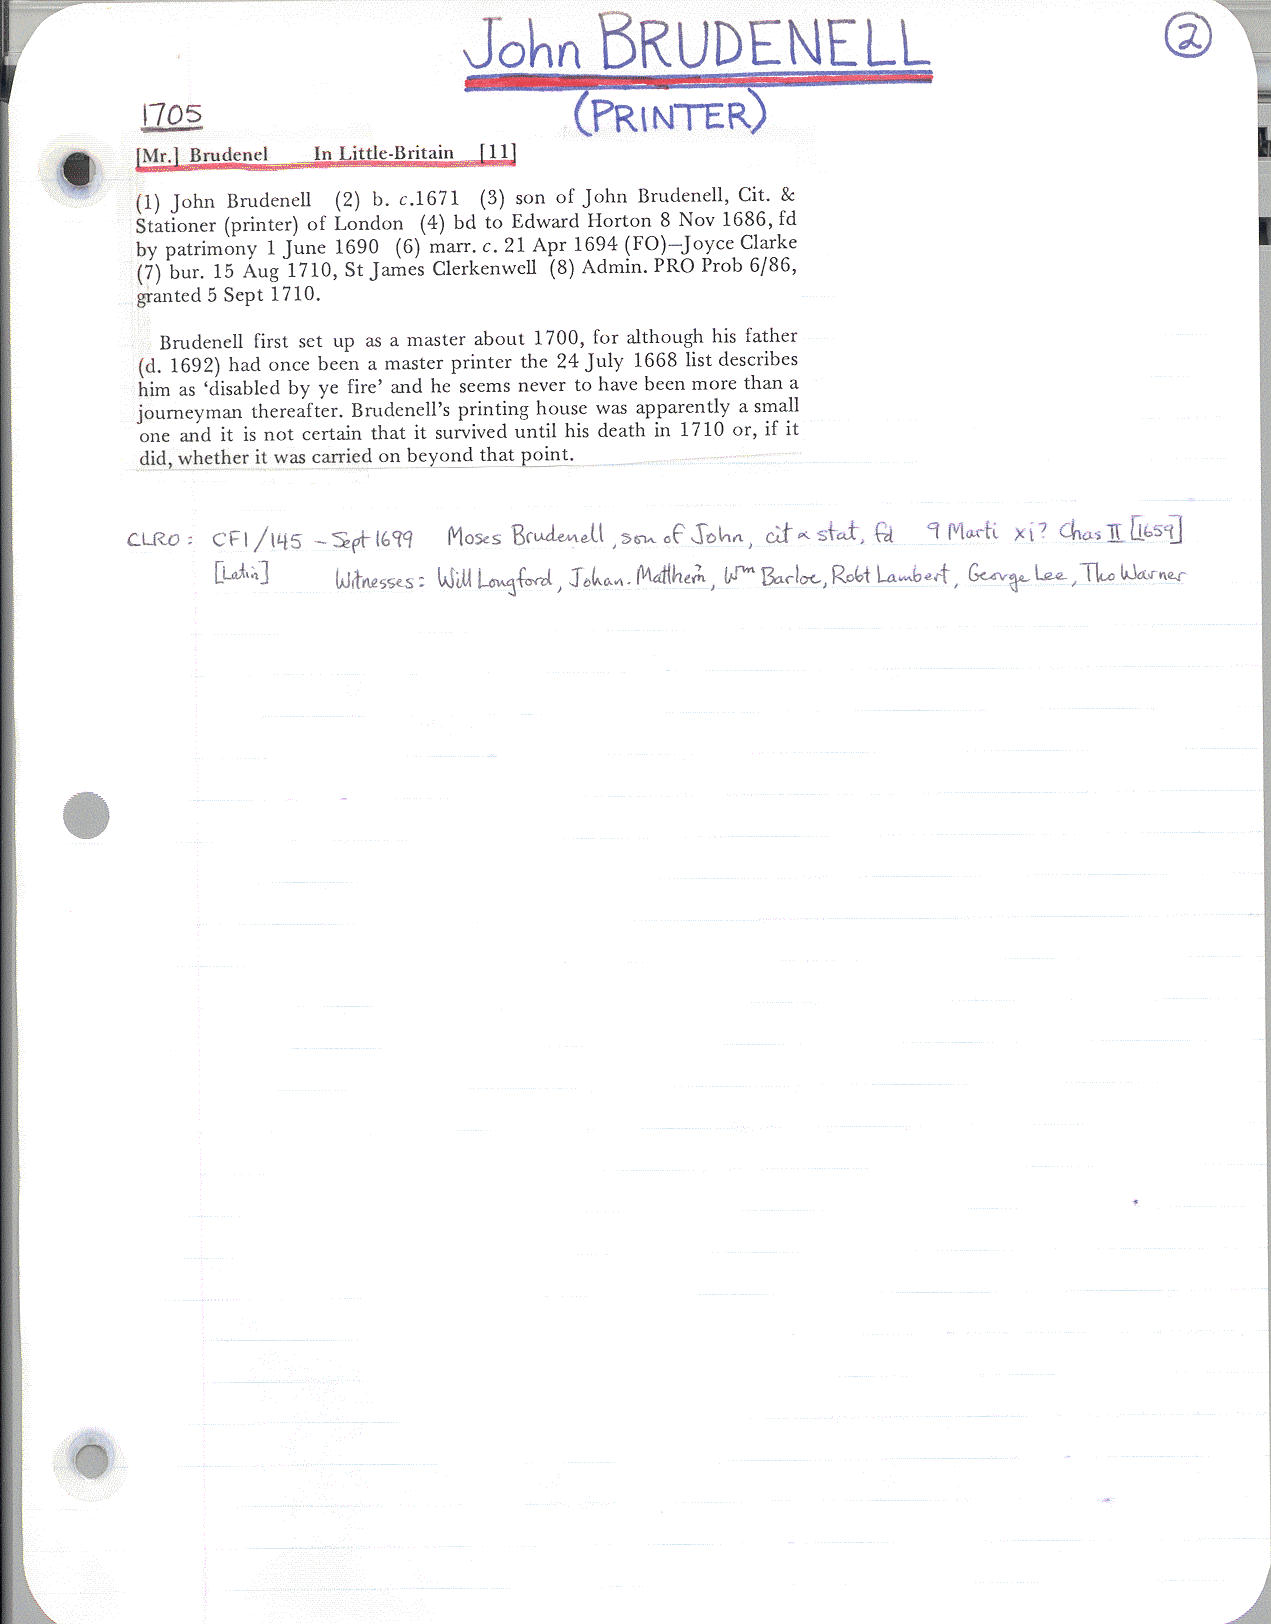 John BRUDENELL
②
(PRINTER)
1705
[Mr.] Brudenel In Little-Britain [11]
(1) John Brudenell (2) b. c.1671 (3) son of John Brudenell, Cit. &
Stationer (printer) of London (4) bd to Edward Horton 8 Nov 1686, fd
by patrimony 1 June 1690 (6) marr. c. 21 Apr 1694 (FO)—Joyce Clarke
(7) bur. 15 Aug 1710, St James Clerkenwell (8) Admin. PRO Prob 6/86,
granted 5 Sept 1710.
Brudenell first set up as a master about 1700, for although his father
(d. 1692) had once been a master printer the 24 July 1668 list describes
him as ‘disabled by ye fire’ and he seems never to have been more than a
journeyman thereafter. Brudenell’s printing house was apparently a small
one and it is not certain that it survived until his death in 1710 or, if it
did, whether it was carried on beyond that point.
CLRO: CF1/145 - Sept 1699 Moses Brudenell, son of John, cit & stat, fd 9 Marti xi? Chas II [1659]
[Latin] Witnesses: Will Longford, Johan. Wm Barloe, Robt Lambert, George Lee, Tho Warner